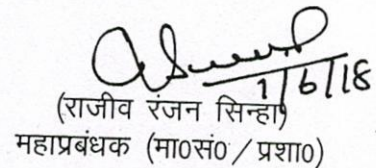 1/6/18
(राजीव रंजन सिन्हा)
महाप्रबंधक (मा०सं० / प्रशा०)